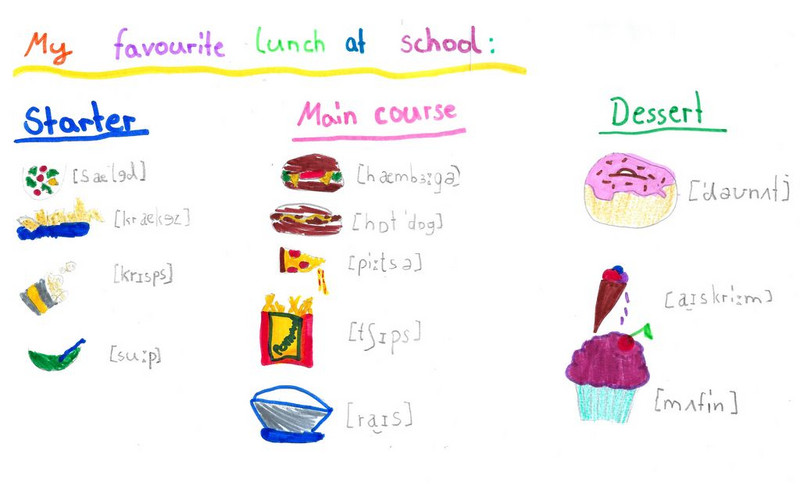 My favourite lunch at school:
Starter
[sæ'ləd]
[krækəz]
[krɪsps]
[su:p]
Main course
[hæmbɜ:gə]
[hɒt 'dog]
[pi:tsə]
[tʃɪps]
[raɪs]
Dessert
['dəʊnʌt]
[aɪskri:m]
[mʌfin]